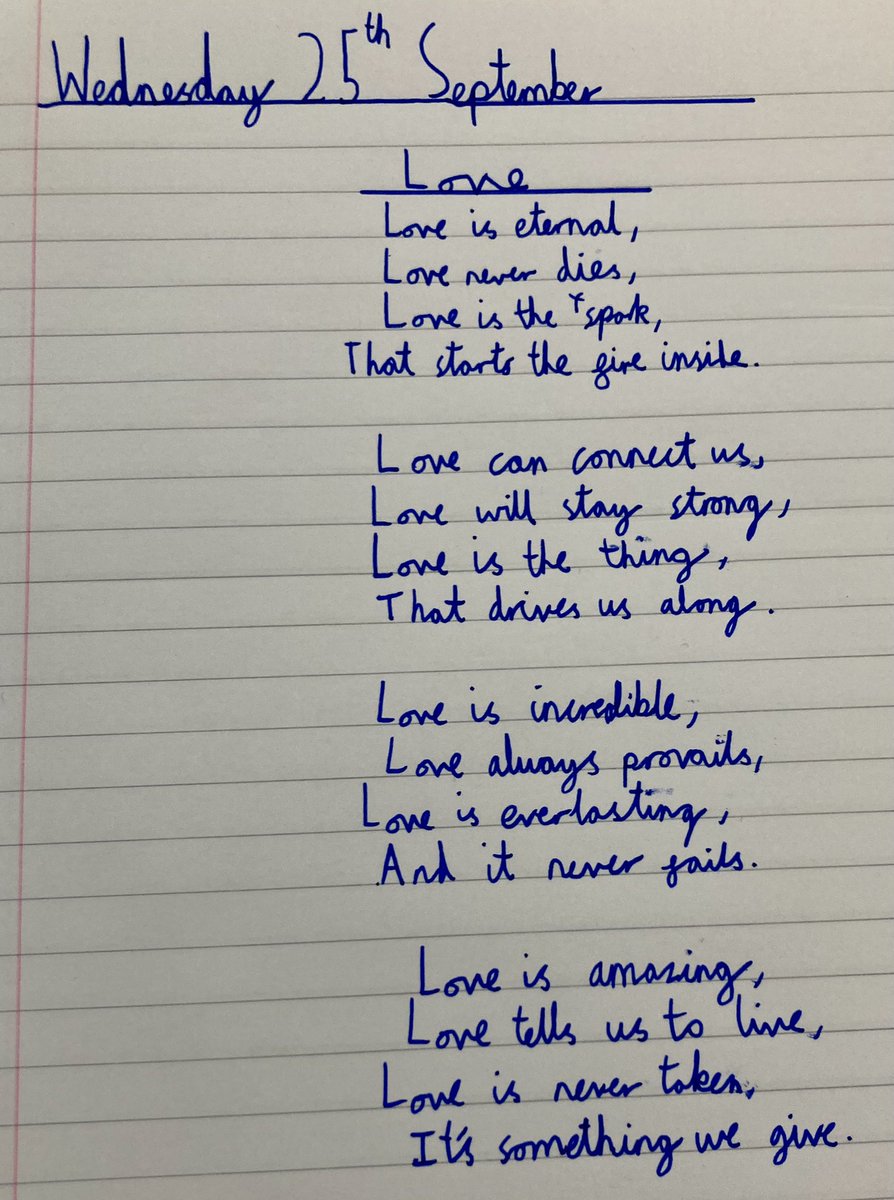 Wednesday 25th September
Love
Love is eternal,
Love never dies,
Love is the spark,
That starts the fire inside.
Love can connect us,
Love will stay strong,
Love is the thing,
That drives us along.
Love is incredible,
Love always provails,
Love is everlasting,
And it never fails.
Love is amazing,
Love tells us to live,
Love is never taken,
It's something we give.